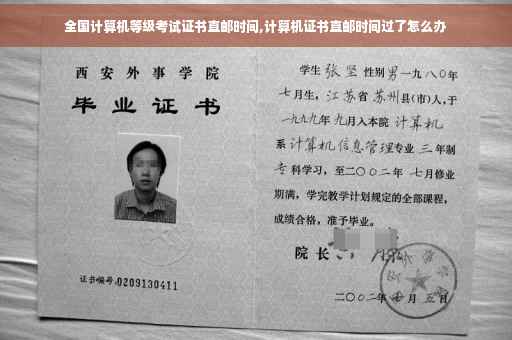 全国计算机等级考试证书直邮时间,计算机证书直邮时间过了怎么办
西安外事学院
毕业证书
证书编号:0209130411
学生 张坚 性别 男 一九八〇年
七月生, 江苏省 苏州 县(市)人,于
一九九九年 九月入本院 计算机
系 计算机信息管理 专业 三 年制
专 科学习, 至二〇〇二年 七月修业
期满, 学完教学计划规定的全部课程,
成绩合格, 准予毕业。
院长
二〇〇二年 月 五日